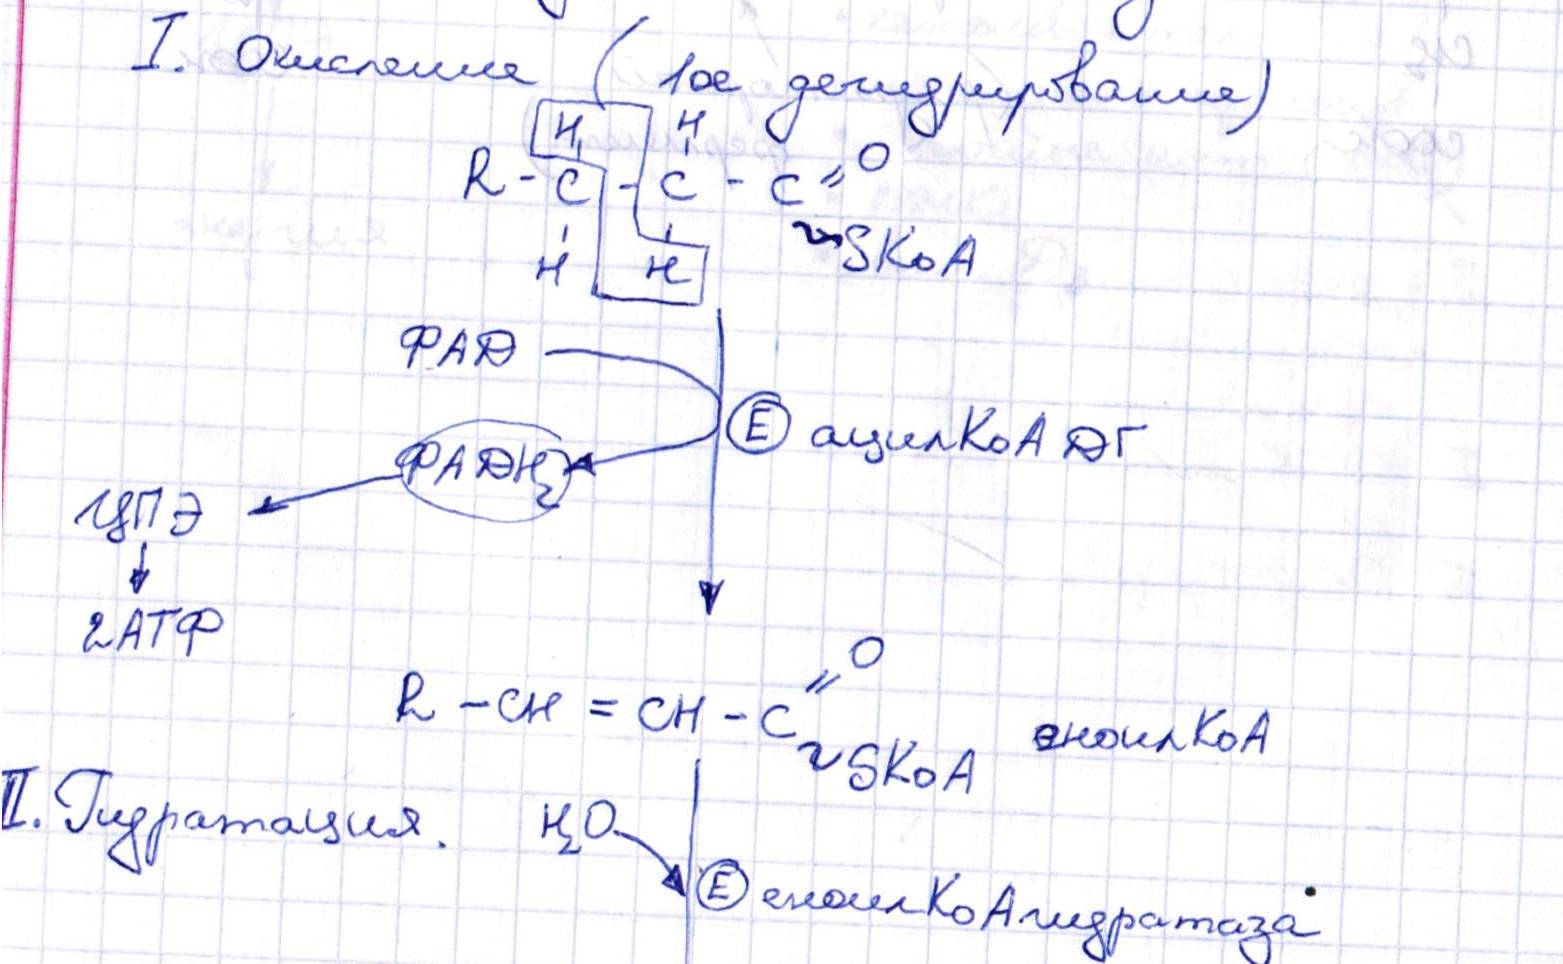 I. Окисление (1ое дегидрирование)
H H
R - C - C - C = O
H H ~SKoA
ФАД
E ацилКоА ДГ
ФАДН2
ЦПЭ
2АТФ
O
R - CH = CH - C
~SKoA еноилКоА
II. Гидратация. H2O
E еноилКоАгидратаза